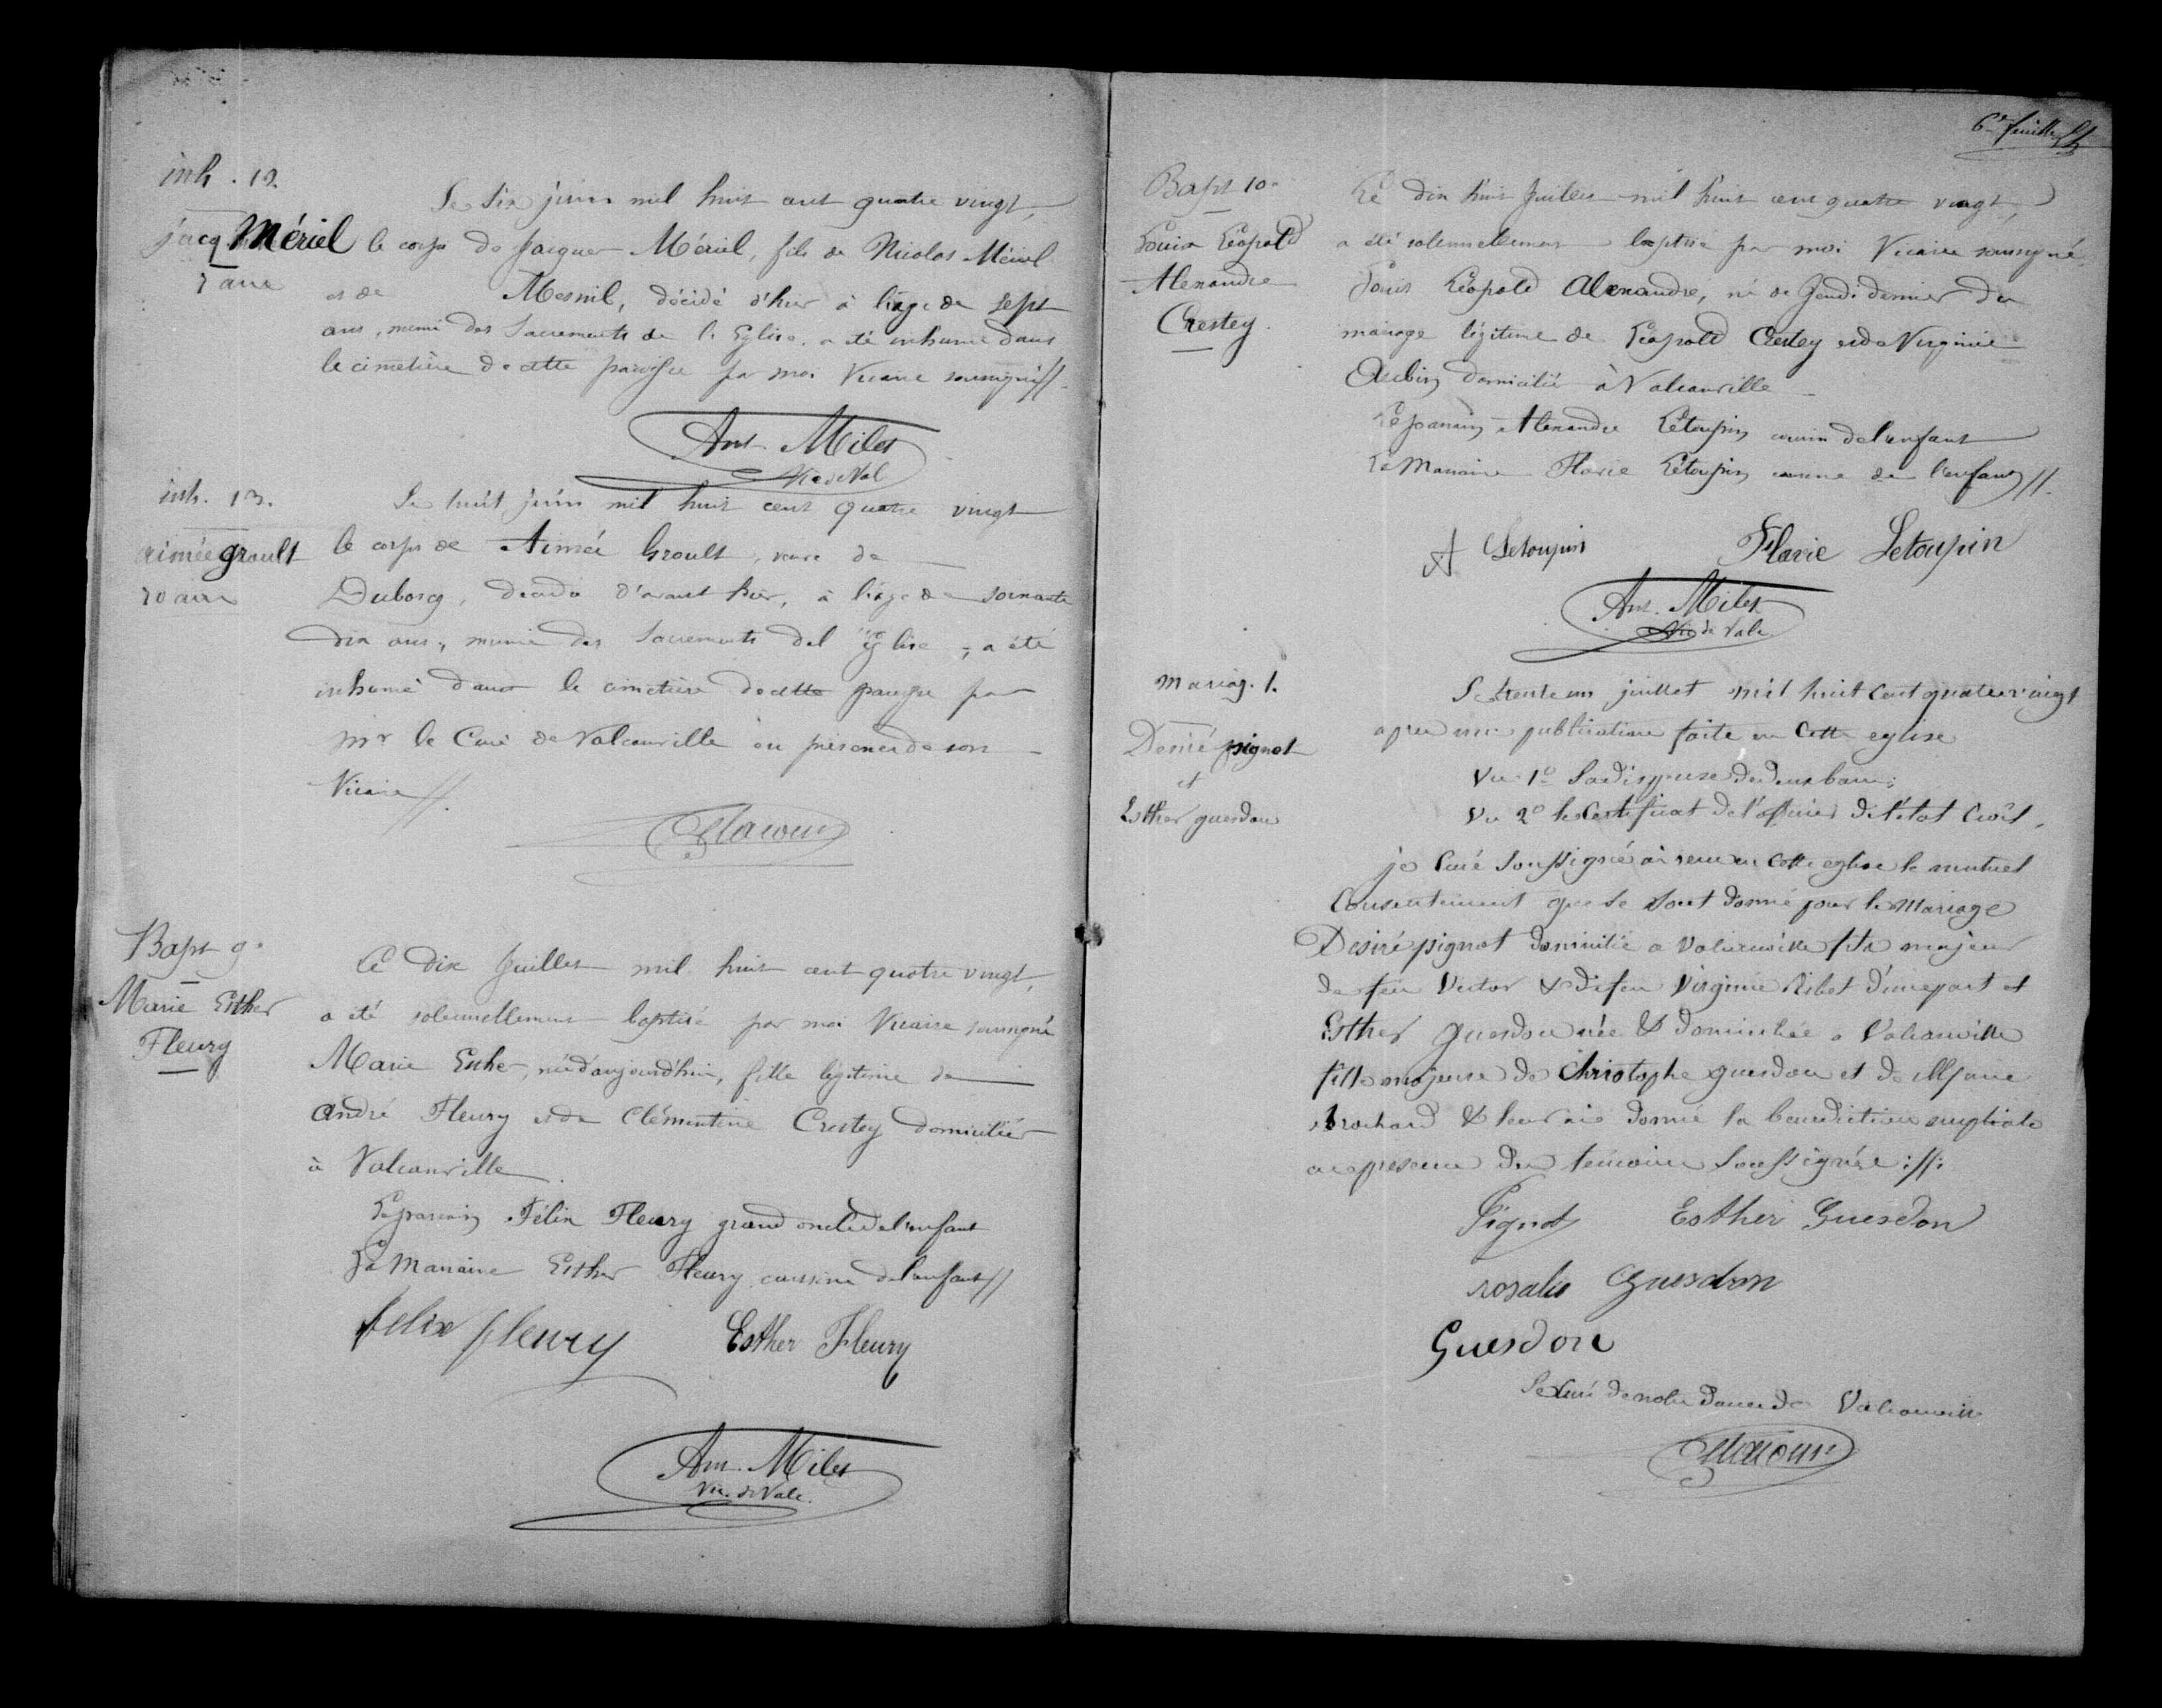 inh. 12.
jacq Mériel
7 ans
Le six juin mil huit cent quatre vingt,
le corps de Jacques Mériel, fils de Nicolas Mériel
et de Mesnil, décédé d'hier à l'âge de sept
ans, muni des Sacrements de l'Eglise, a été inhumé dans
le cimetière de cette paroisse par moi Vicaire soussigné //.
Ant. Miles
Vic de Val
inh. 13.
aimée groult
70 ans
Le huit juin mil huit cent quatre vingt
le corps de Aimée Groult, veuve de
Duboscq, décédée d'avant hier, à l'âge de soixante
dix ans, munie des Sacrements de l'église, a été
inhumé dans le cimetière de cette paroisse par
Mr le Curé de Valcanville en présence de son
Vicaire //.
Bapt 9e
Marie Esther
Fleury
Le dix Juillet mil huit cent quatre vingt,
a été solennellement baptisé par moi Vicaire soussigné
Marie Esther, née d'aujourd'hui, fille légitime de
André Fleury et de Clémentine Crestey domiciliés
à Valcanville.
Le parrain Félix Fleury grand oncle de l'enfant
La Marraine Esther Fleury cousine de l'enfant //
felix fleury Esther Fleury
Ant. Miles
Vic. de Valc.
6e feuillet
Bapt 10e
Louis Léopold
Alexandre
Crestey.
Le dix huit Juillet mil huit cent quatre vingt,
a été solennellement baptisé par moi Vicaire soussigné
Louis Léopold Alexandre, né de Jeudi dernier du
mariage légitime de Léopold Crestey et de Virginie
Aubin domiciliés à Valcanville
Le parrain Alexandre Létoupin cousin de l'enfant
La Marraine Flavie Létoupin cousine de l'enfant //.
A Letoupin Flavie Letoupin
Ant. Miles
Vic de Valc
mariag. 1.
Desiré pignot
et
Esther guesdon
Le trente un juillet mil huit cent quatre vingt
apres une publication faite en cette eglise
Vu 1º la dispense de deux bans;
Vu 2º le certificat de l'officier de l'état civil,
je Curé soussigné ai recu en cette eglise le mutuel
Consentement que se sont donné pour le mariage
Desiré pignot domicilié a Valcanville fils majeur
de feu Victor & de feu Virginie Ribet d'une part et
Esther guesdon née & domiciliée a Valcanville
fille majeure de Christophe guesdon et de
brochard & leur ai donné la benediction nuptiale
en presence des temoins soussignés ://:
Pignot Esther Guesdon
rosalie Guesdon
Guesdon
Le Curé de notre Dame de Valcanville